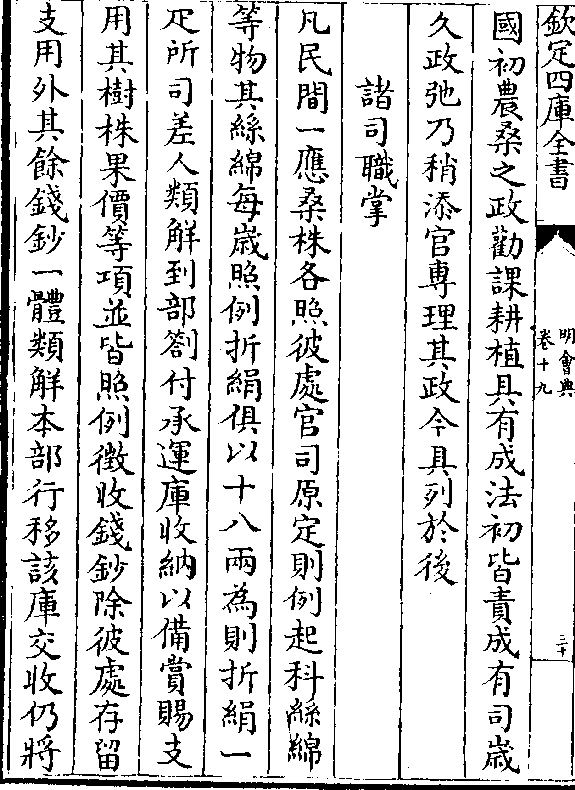 欽定四庫全書
明會典
卷十九
三十
國初農桑之政勸課耕植具有成法初皆責成有司歳
久政弛乃稍添官専理其政今具列於後
諸司職掌
凡民間一應桑株各照彼處官司原定則例起科絲綿
等物其絲綿每歳照例折絹俱以十八兩為則折絹一
疋所司差人類解到部劄付承運庫收納以備賞賜支
用其樹株果價等項並皆照例徴收錢鈔除彼處存留
支用外其餘錢鈔一體類解本部行移該庫交收仍將